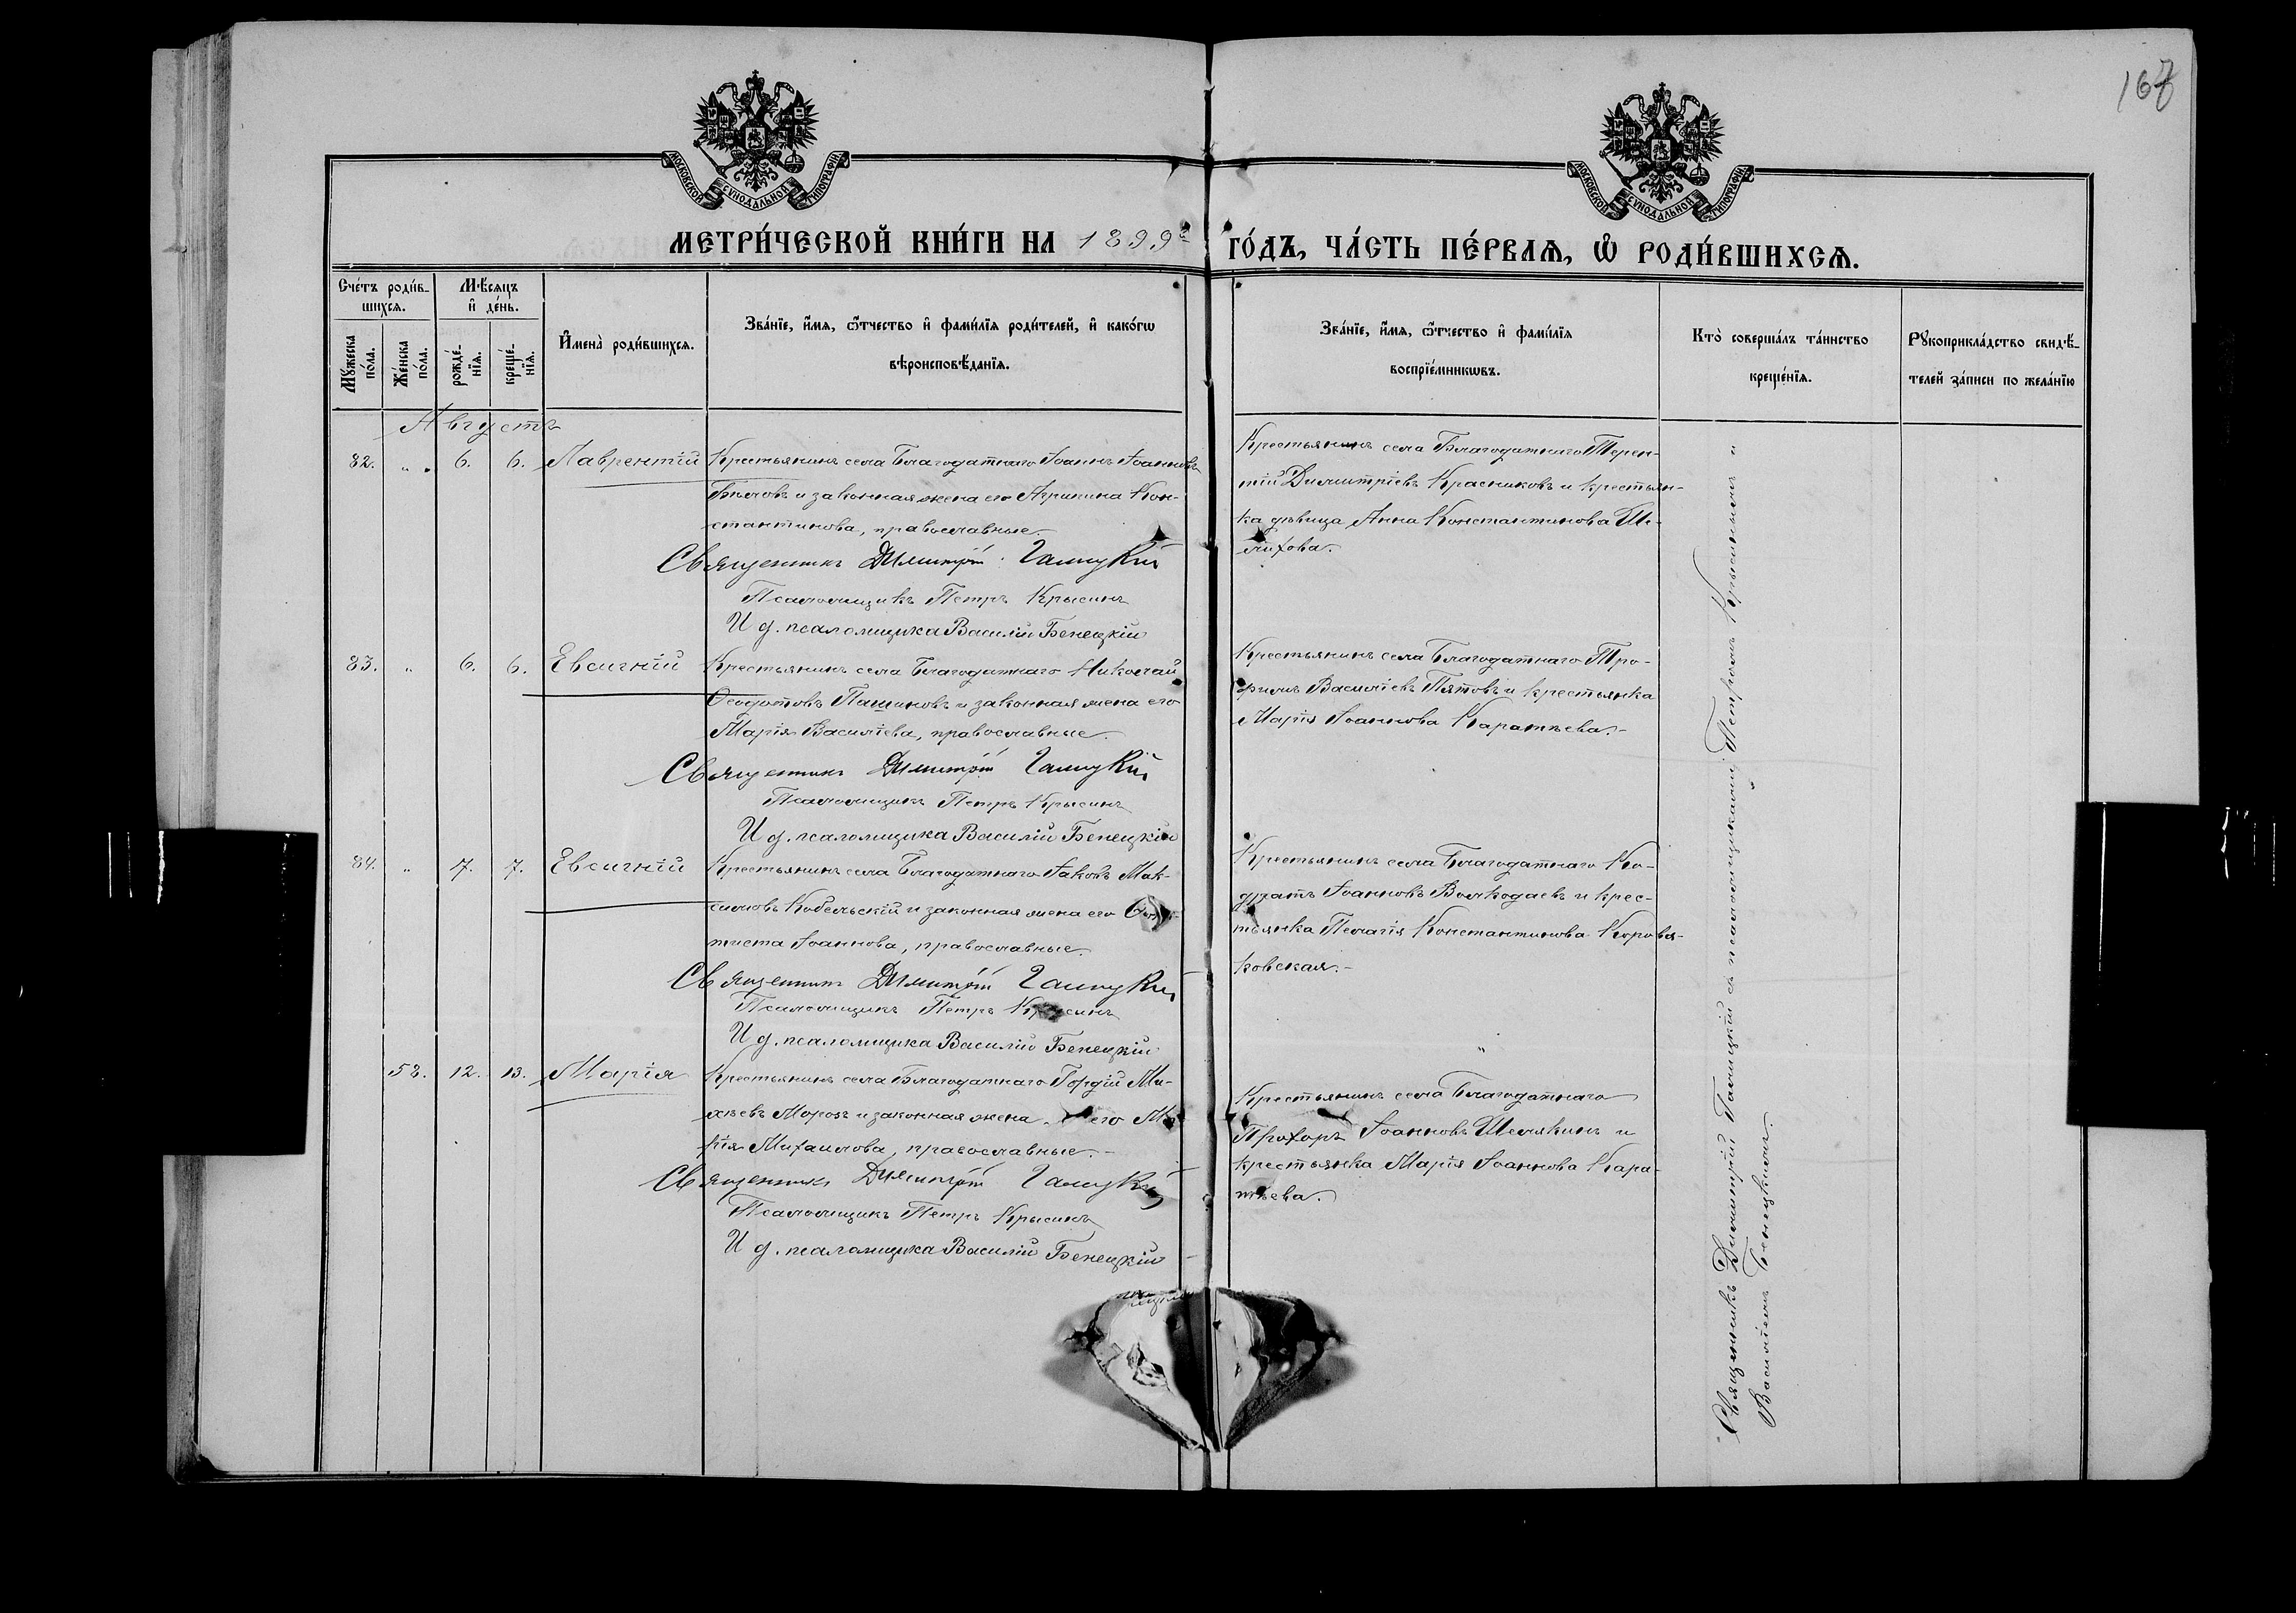 167
МОСКОВСКОЙ СУНОДАЛЬНОЙ ТИПОГРАФІИ
МОСКОВСКОЙ СУНОДАЛЬНОЙ ТИПОГРАФІИ
МЕТРИ́ЧЕСКОЙ КНИ́ГИ НА 1899й ГО́ДЪ, ЧА́СТЬ ПЕ́РВАѦ, Ѡ҆ РОДИ́ВШИХСѦ.
Сче́тъ роди́в-
шихсѧ.
Мꙋ́жеска по́ла.
Же́нска по́ла.
Мѣ́сѧцъ
и҆ де́нь.
рожде́-
нїѧ.
креще́-
нїѧ.
И҆мена̀ роди́вшихсѧ.
Зва́нїе, и҆́мѧ, ѻ҆́тчество и҆ фами́лїѧ роди́телей, и҆ како́гѡ
вѣроисповѣ́данїѧ.
Зва́нїе, и҆́мѧ, ѻ҆́тчество и҆ фами́лїѧ
воспрїе́мникѡвъ.
Кто̀ соверша́лъ та́инство
креще́нїѧ.
Рꙋкоприкла́дство свидѣ́-
телей за́писи по жела́нїю
Августъ
82. " 6. 6. Лаврентій
Крестьянинъ села Благодатнаго Іоаннъ Іоанновъ
Бѣловъ и законная жена его Агрипина Кон-
стантинова, православные.
Священникъ Димитрій Галицкій
Псаломщикъ Петръ Крысинъ
И д. псаломщика Василій Бенецкій
Крестьянинъ села Благодатнаго Терен-
тій Димитріевъ Красниковъ и крестьян-
ка дѣвица Анна Константинова Ше-
лихова.
83. " 6. 6. Евсигній
Крестьянинъ села Благодатнаго Николай
Ѳеодотовъ Пашиновъ и законная жена его
Марія Василіева, православные.
Священникъ Димитрій Галицкій
Псаломщикъ Петръ Крысинъ
И д. псаломщика Василій Бенецкій
Крестьянинъ села Благодатнаго Тро-
фимъ Василіевъ Пятовъ и крестьянка
Марія Іоаннова Каратѣева.-
84. " 7. 7. Евсигній
Крестьянинъ села Благодатнаго Іаковъ Мак-
симовъ Кобельскій и законная жена его
тиста Іоаннова, православные.
Священникъ Димитрій Галицкій
Псаломщикъ Петръ Крысинъ
И д. псаломщика Василій Бенецкій
Крестьянинъ села Благодатнаго Ко-
дратъ Іоанновъ Волкодаевъ и крес-
тьянка Пелагія Константинова Коровя-
ковская.-
58. 12. 13. Марія
Крестьянинъ села Благодатнаго Гордій Ми-
хѣевъ Морозъ и законная жена его Ма-
рія Михаилова, православные.-
Священникъ Димитрій Галицкій
Псаломщикъ Петръ Крысинъ
И д. псаломщика Василій Бенецкій
Крестьянинъ села Благодатнаго
Прохоръ Іоанновъ Шелякинъ и
крестьянка Марія Іоаннова Кара-
тѣева.
Священникъ Димитрій Галицкій съ псаломщиками, Петромъ Крысинымъ и
Василіемъ Бенецкимъ.